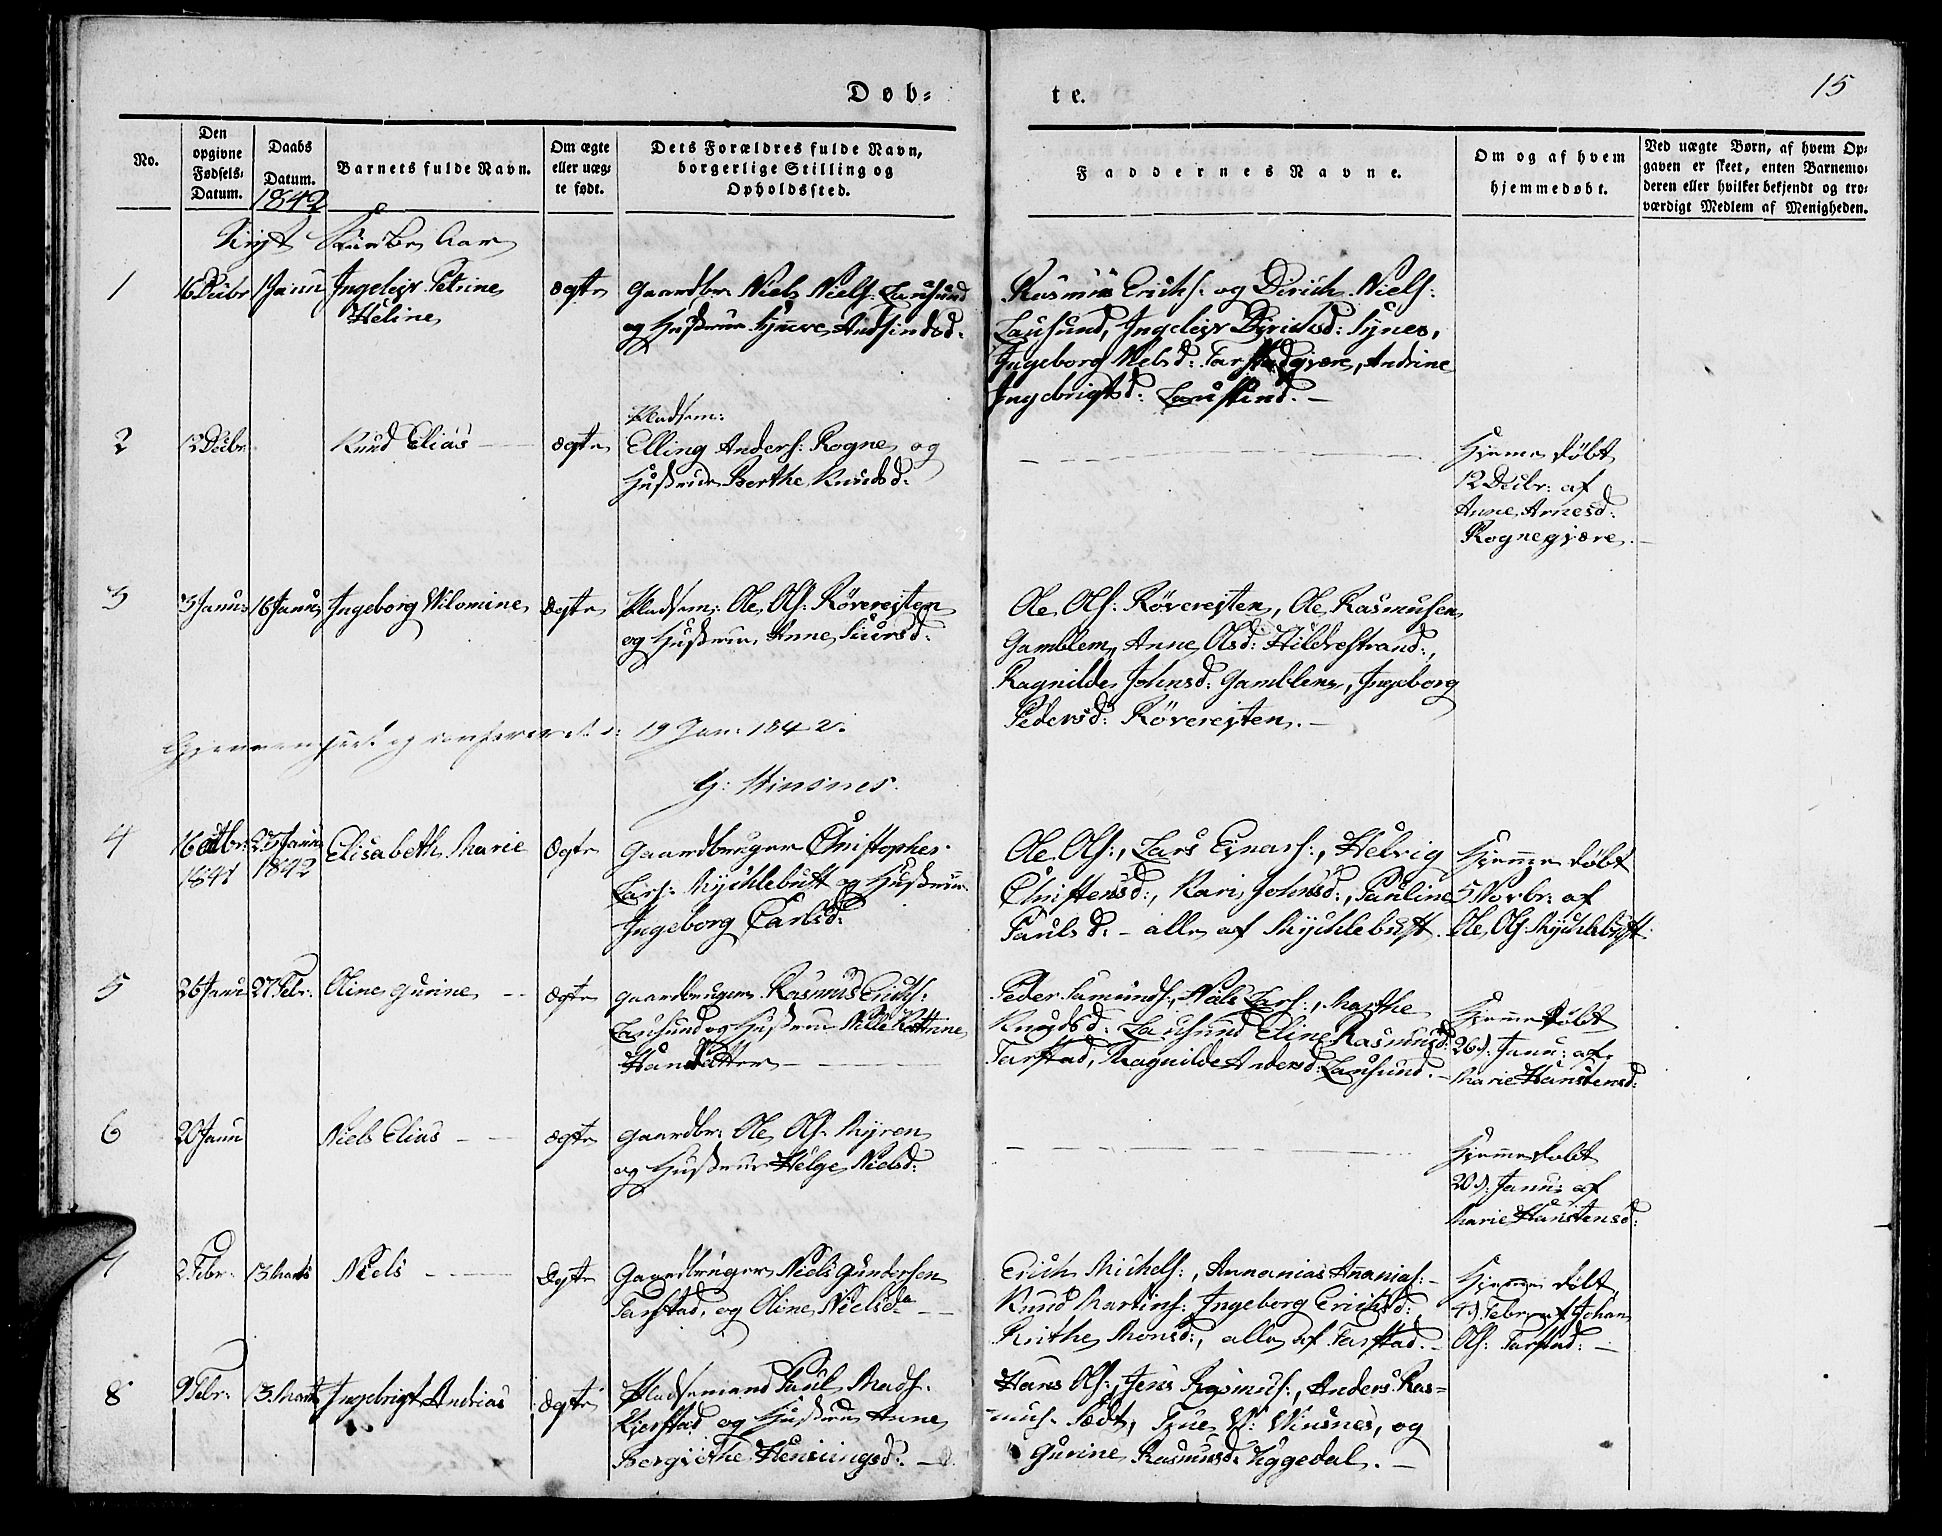 Døb=
te.
15
No.
Den opgivne Fødsels= Datum.
Daabs Datum.
1842
Barnets fulde Navn.
Om ægte eller uæg= te født.
Dets Forældres fulde Navn, borgerlige Stilling og Opholdssted.
Faddernes Navne.
Om og af hvem hjemmedøbt.
Ved uægte Børn, af hvem Op= gaven er skeet, enten Barnemo= deren eller hvilket bekjendt og tro= værdigt Medlem af Menigheden.
Aar
1
16 Decbr
1 Janu
Ingeleiv Petrine
Heline
ægte
Gaardbr. Niels Niels. Lausund
og Hustrue Synneve Audsindsd.
Rasmus Erichs: og Dirich Niels:
Lausund, Ingeleiv Dirichsd: Synes,
Ingeborg Nielsd: Tarstadgjære, Andrine
Ingebrigtsd: Lausund. —
2
12 Decbr
Knud Elias —
ægte
Pladsm:
Elling Anders: Rogne og
Hustrue Berthe Knudsd:
Hjemme døbt
12 Decbr: af
Anne Arnesd:
Rognegjære. —
3
3 Janu:
16 Janu:
Ingeborg Wilomine
ægte
Pladsm: Ole Ols: Röverejten
og Hustrue Anne Siursd:
Ole Ols: Röverejten, Ole Rasmusen
Gamblem, Anne Olsd: Hildrestrand,
Ragnilde Johnsd: Gamblem, Ingeborg
Pedersd: Röverejten. —
Gjennemseet og confereret d: 19 Jan: 1842.
G: Winsnes.
4
16 Octbr: 1841
23 Janu 1842
Elisabeth Marie
ægte
Gaardbruger Christopher
Lars: Mychlebust og Hustrue
Ingeborg Carlsd:
Ole Ols:, Lars Ejnars:, Helvig
Christensd:, Kari Johnsd:, Pauline
Paulsd: – alle af Mychlebust.
Hjemme døbt
5 Novbr: af
Ole Ols: Mychlebust.
5
26 Janu
27 Febr:
Oline Gurine —
ægte
Gaardbruger Rasmus Erichs:
Lausund og Hustrue Nille Kattrine
Hansdatter —
Peder Samunds:, Niels Lars:, Marthe
Knudsd: Lausund Eline Rasmusd:
Tarstad, Ragnilde Andersd: Lausund. —
Hjemmedøbt
26d: Janu: af
Marie Haustensd:
6
20 Janu
Niels Elias —
ægte
Gaardbr: Ole Ols. Myren
og Hustrue Helge Nielsd:
Hjemmedøbt
20d: Janu: af
Marie Haustensd:
7
2 Febr:
13 Marts
Niels —
ægte
Gaardbruger Niels Gundersen
Tarstad, og Oline Nielsda —
Erich Michels:, Annanias Ananias: –
Knud Martins: Ingeborg Erichsd:
Rinthe Monsd:, alle af Tarstad. —
Hjemme døbt
4d: Febr: af Johan
Ols: Tarstad: —
8
9 Febr:
13 Marts
Ingebrigt Andrias
ægte
Pladsemand Paul Mads:
Kjerstad og Hustrue Anne
Bergiethe Henningsd: —
Hans Ols:, Jens Rasmus:, Anders Ras=
mus: Sædt, W: Winsnes, og
Gurine Rasmusd: Uggedal. —